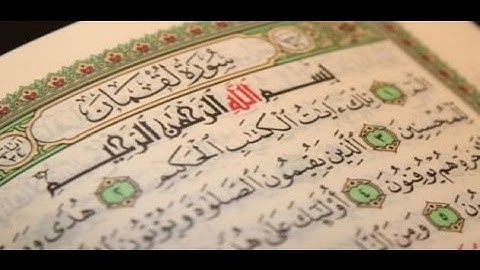 سُورَةُ لُقْمَان
بِسْمِ اللَّهِ الرَّحْمَٰنِ الرَّحِيمِ
الٓمٓ ١ تِلْكَ ءَايَٰتُ الْكِتَٰبِ الْحَكِيمِ
٢ هُدًى
لِّلْمُحْسِنِينَ ٣ الَّذِينَ يُقِيمُونَ الصَّلَوٰةَ وَيُؤْتُونَ
هُمْ يُوقِنُونَ ٤ أُوْلَٰٓئِكَ عَلَىٰ هُدًى
٥ وَمِنَ